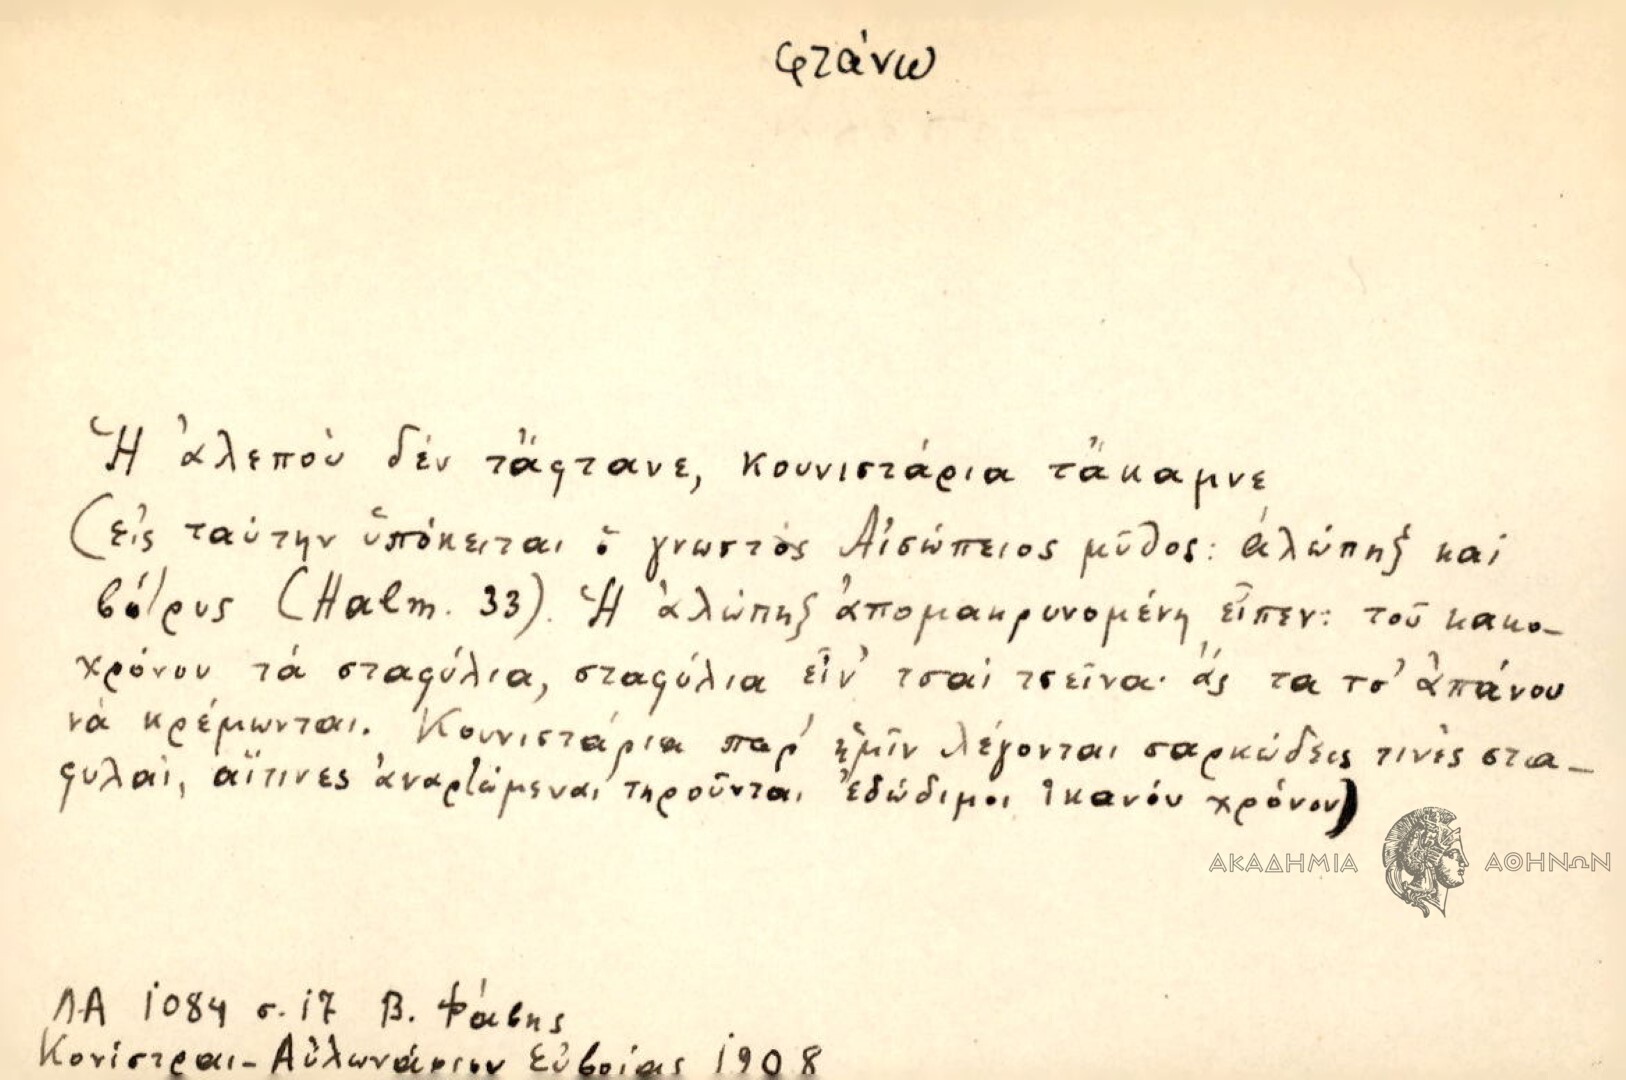 φτάνω
Ἡ ἀλεποὺ δέν τἄφτανε, κουνιστάρια τἄκαμνε
(εἰς ταύτην ὑπόκειται ὁ γνωστὸς Αἰσώπειος μῦθος: ἀλώπηξ καὶ
βότρυς (Halm. 33). Ἡ ἀλώπηξ ἀπομακρυνομένη εἶπεν: τοῦ κακο-
χρόνου τά σταφύλια, σταφύλια εἶν' τσαί τσεῖνα· ἄς τα τσ' ἀπάνου
νά κρέμωνται. Κουνιστάρια παρ' ἡμῖν λέγονται σαρκώδεις τινὲς στα-
φυλαὶ, αἵτινες ἀναρτώμεναι τηροῦνται ἐδώδιμοι ἱκανόν χρόνον)
ΑΚΑΔΗΜΙΑ ΑΘΗΝΩΝ
ΛΑ 1084 σ. 17 Β. Φάβης
Κονίστραι - Αὐλωνάριον Εὐβοίας 1908